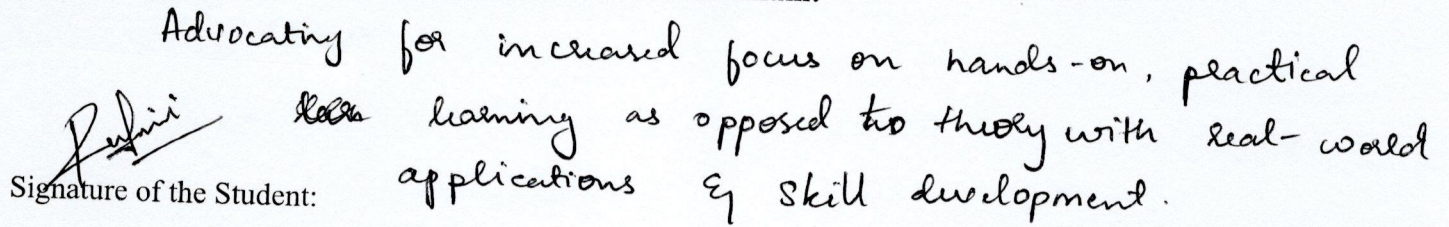 Advocating for increased focus on hands-on, practical
learning as opposed to theory with real-world
applications & skill development.
Signature of the Student: